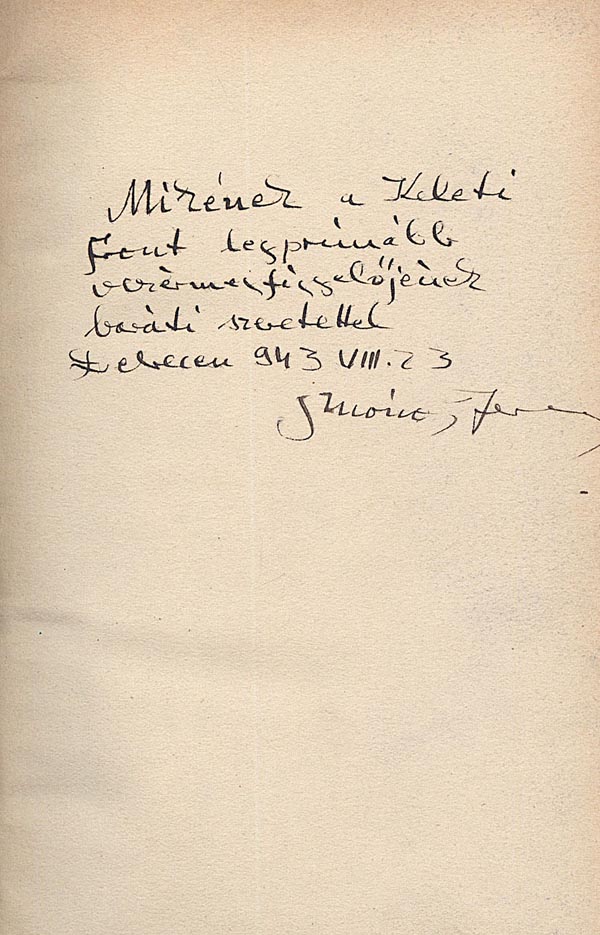 Mikének a Keleti
front legprímább
vezérmegfigyelőjének
baráti szeretettel
Debrecen 943 VIII. 23
Ferenc